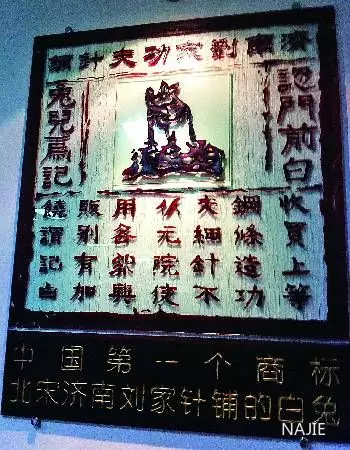 濟南劉家功夫針鋪
認門前白
兔兒爲記
收買上等
鋼條造功
夫細針不
院使
用各興
販別有加
饒謂記白
中国第一个商标
北宋济南刘家针铺的白兔
NAJIE